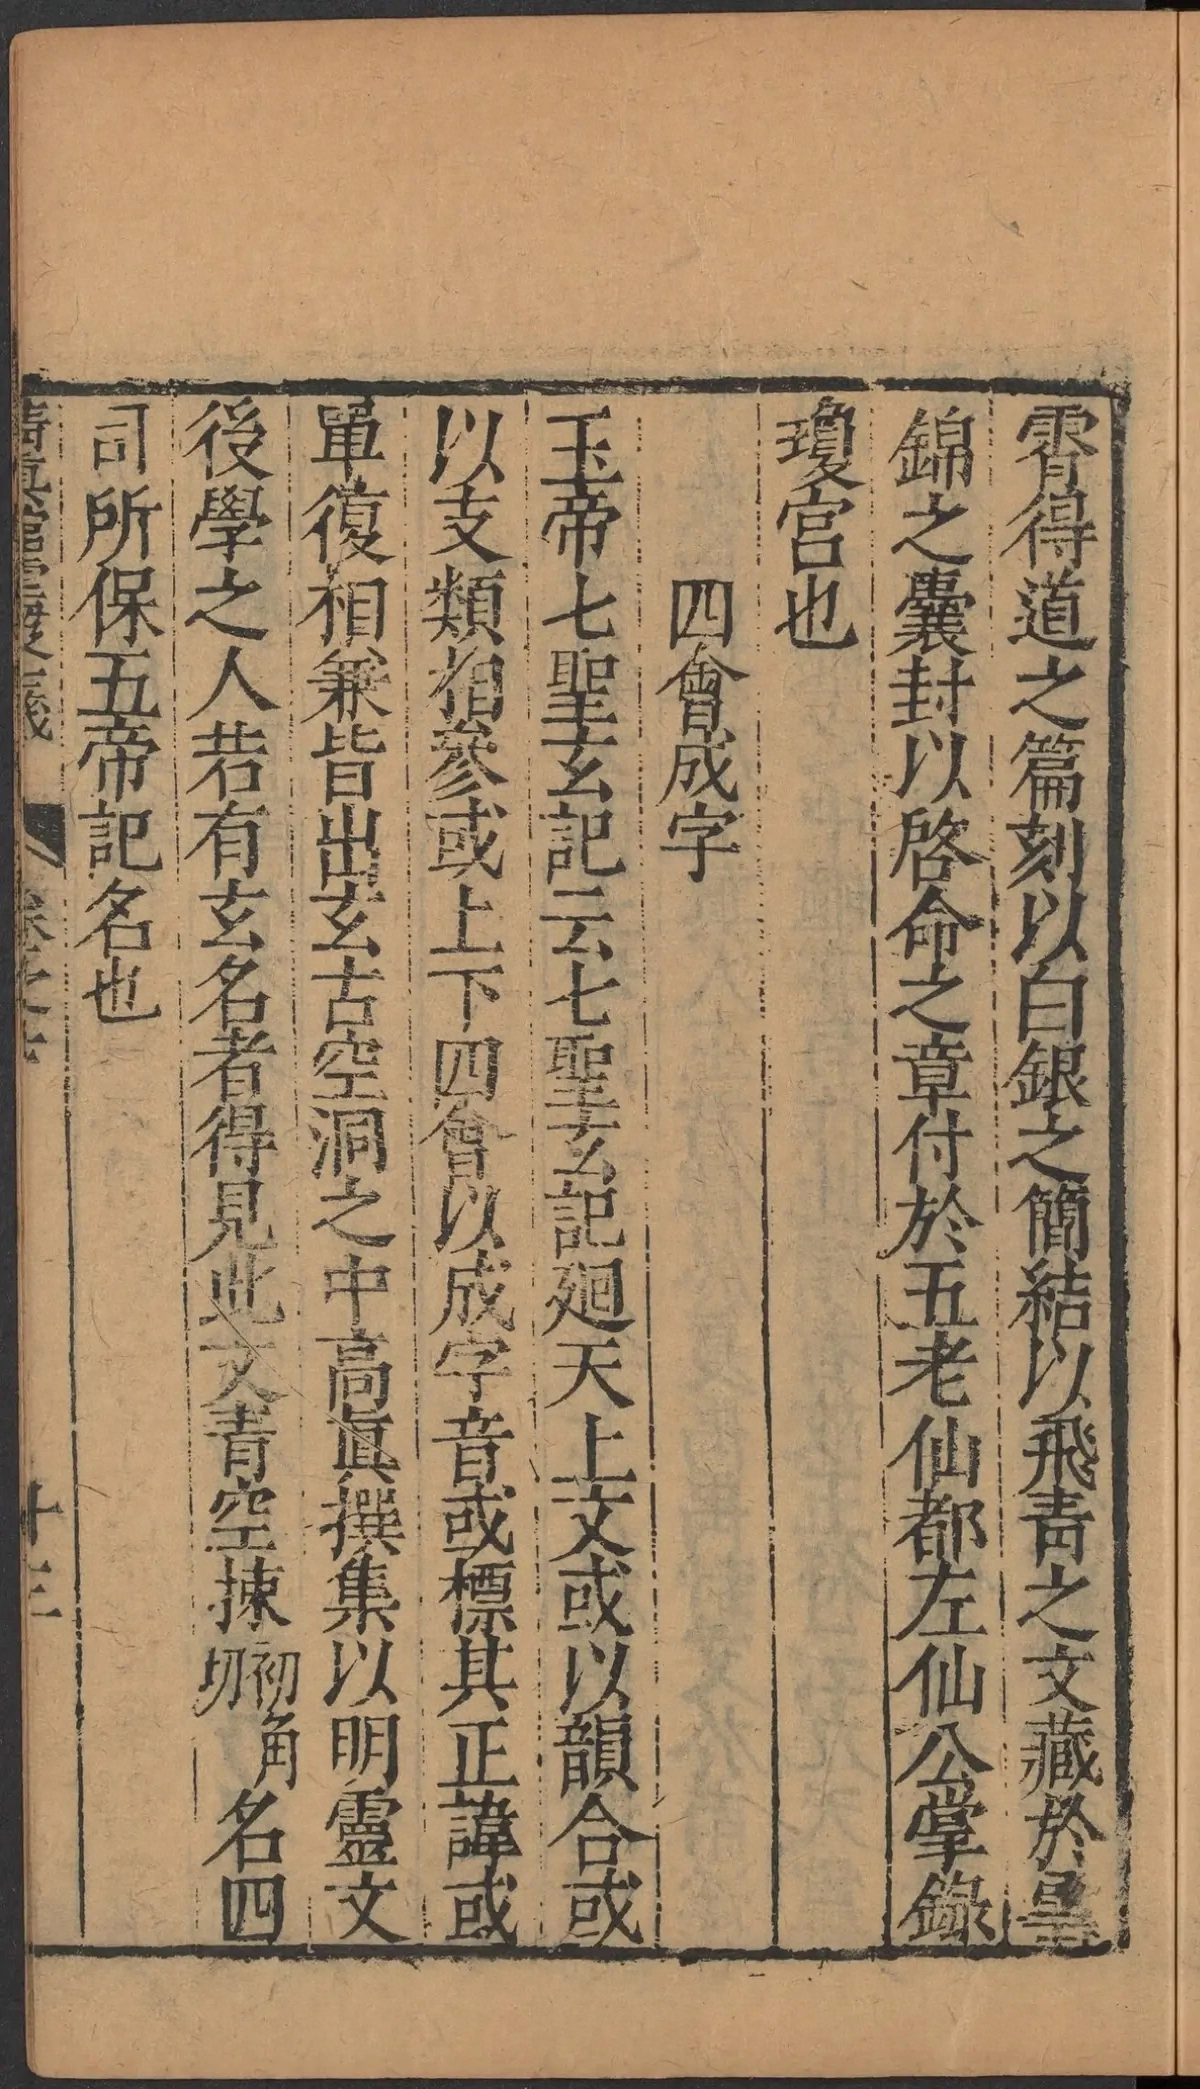 霄得道之篇刻以白銀之簡結以飛青之文藏於雲
錦之囊封以啓命之章付於五老仙都左仙公掌錄
瓊宮也
四會成字
玉帝七聖玄記云七聖玄記廻天上文或以韻合或
以支類相參或上下四會以成字音或標其正諱或
單復相兼皆出玄古空洞之中高眞撰集以明靈文
後學之人若有玄名者得見此文青空㨂初角切名四
司所保五帝記名也
十三